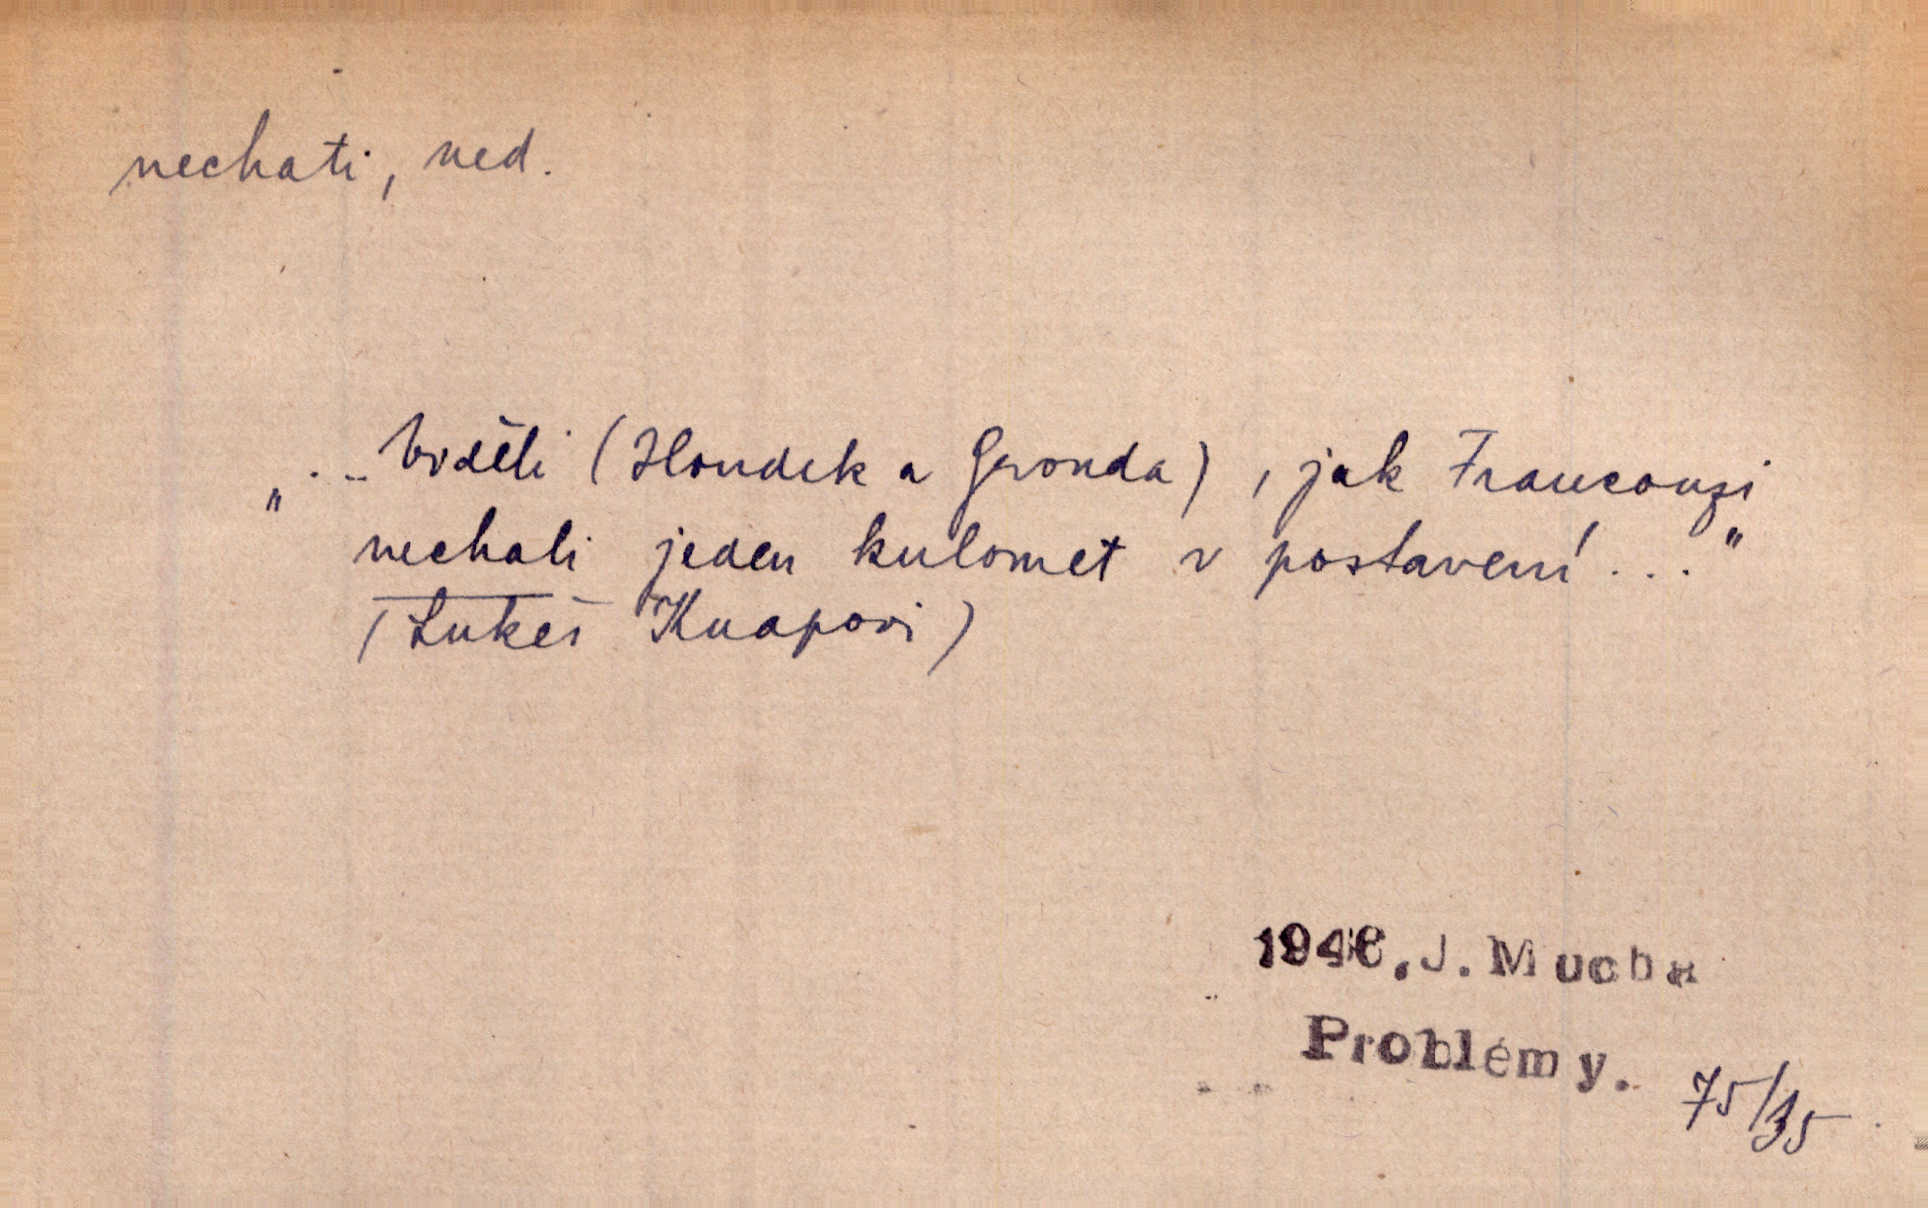 nechati, ned.
„... Viděli (Hloudek a Gronda), jak Francouzi
nechali jeden kulomet v postavení..."
(Lukeš Knapovi)
1946. J. Mucha
Problémy.
75/35